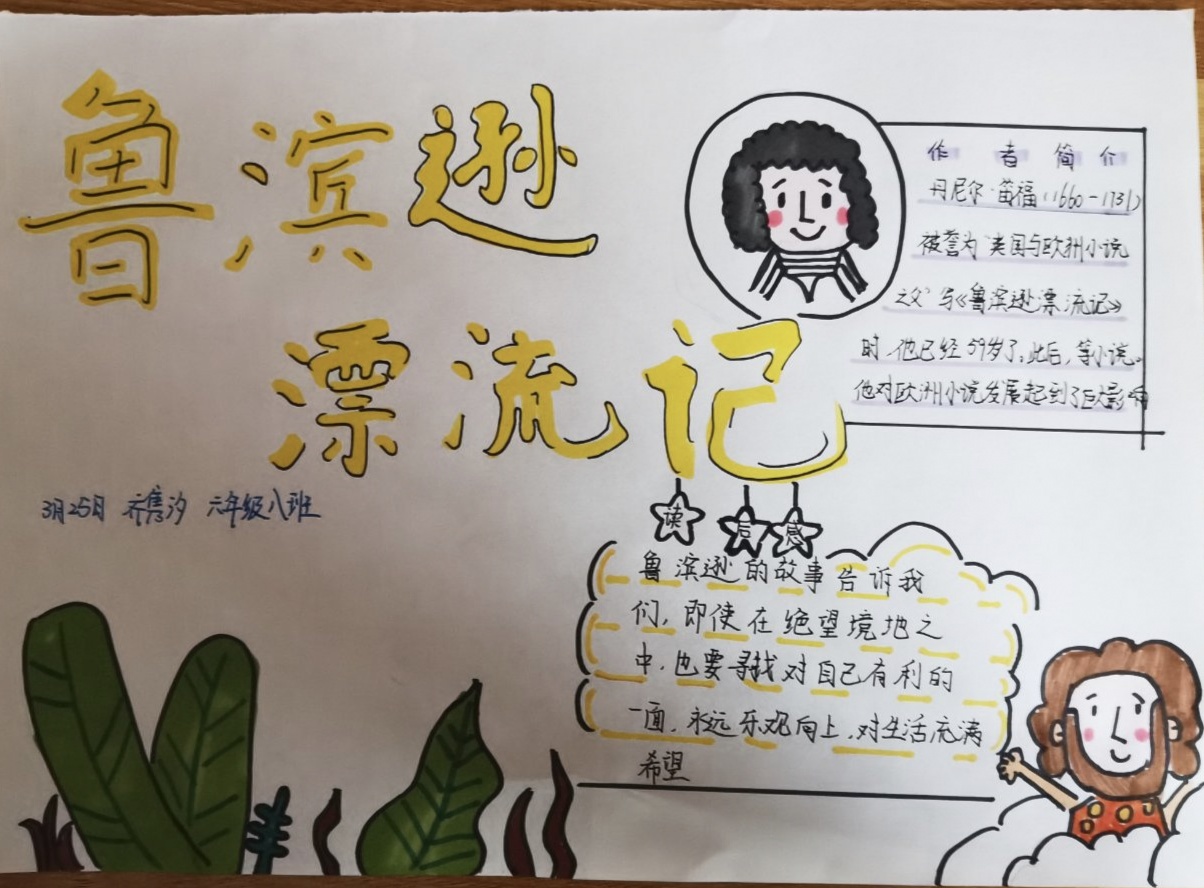 鲁滨逊
漂流记
作者简介
丹尼尔·笛福（1660-1731）
被誉为"英国与欧洲小说
之父"写《鲁滨逊漂流记》
时，他已经59岁了。此后，等小说。
他对欧洲小说发展起到了巨大影响
3月25日 齐隽汐 六年级八班
读后感
鲁滨逊的故事告诉我
们，即使在绝望境地之
中，也要寻找对自己有利的
一面，永远乐观向上，对生活充满
希望